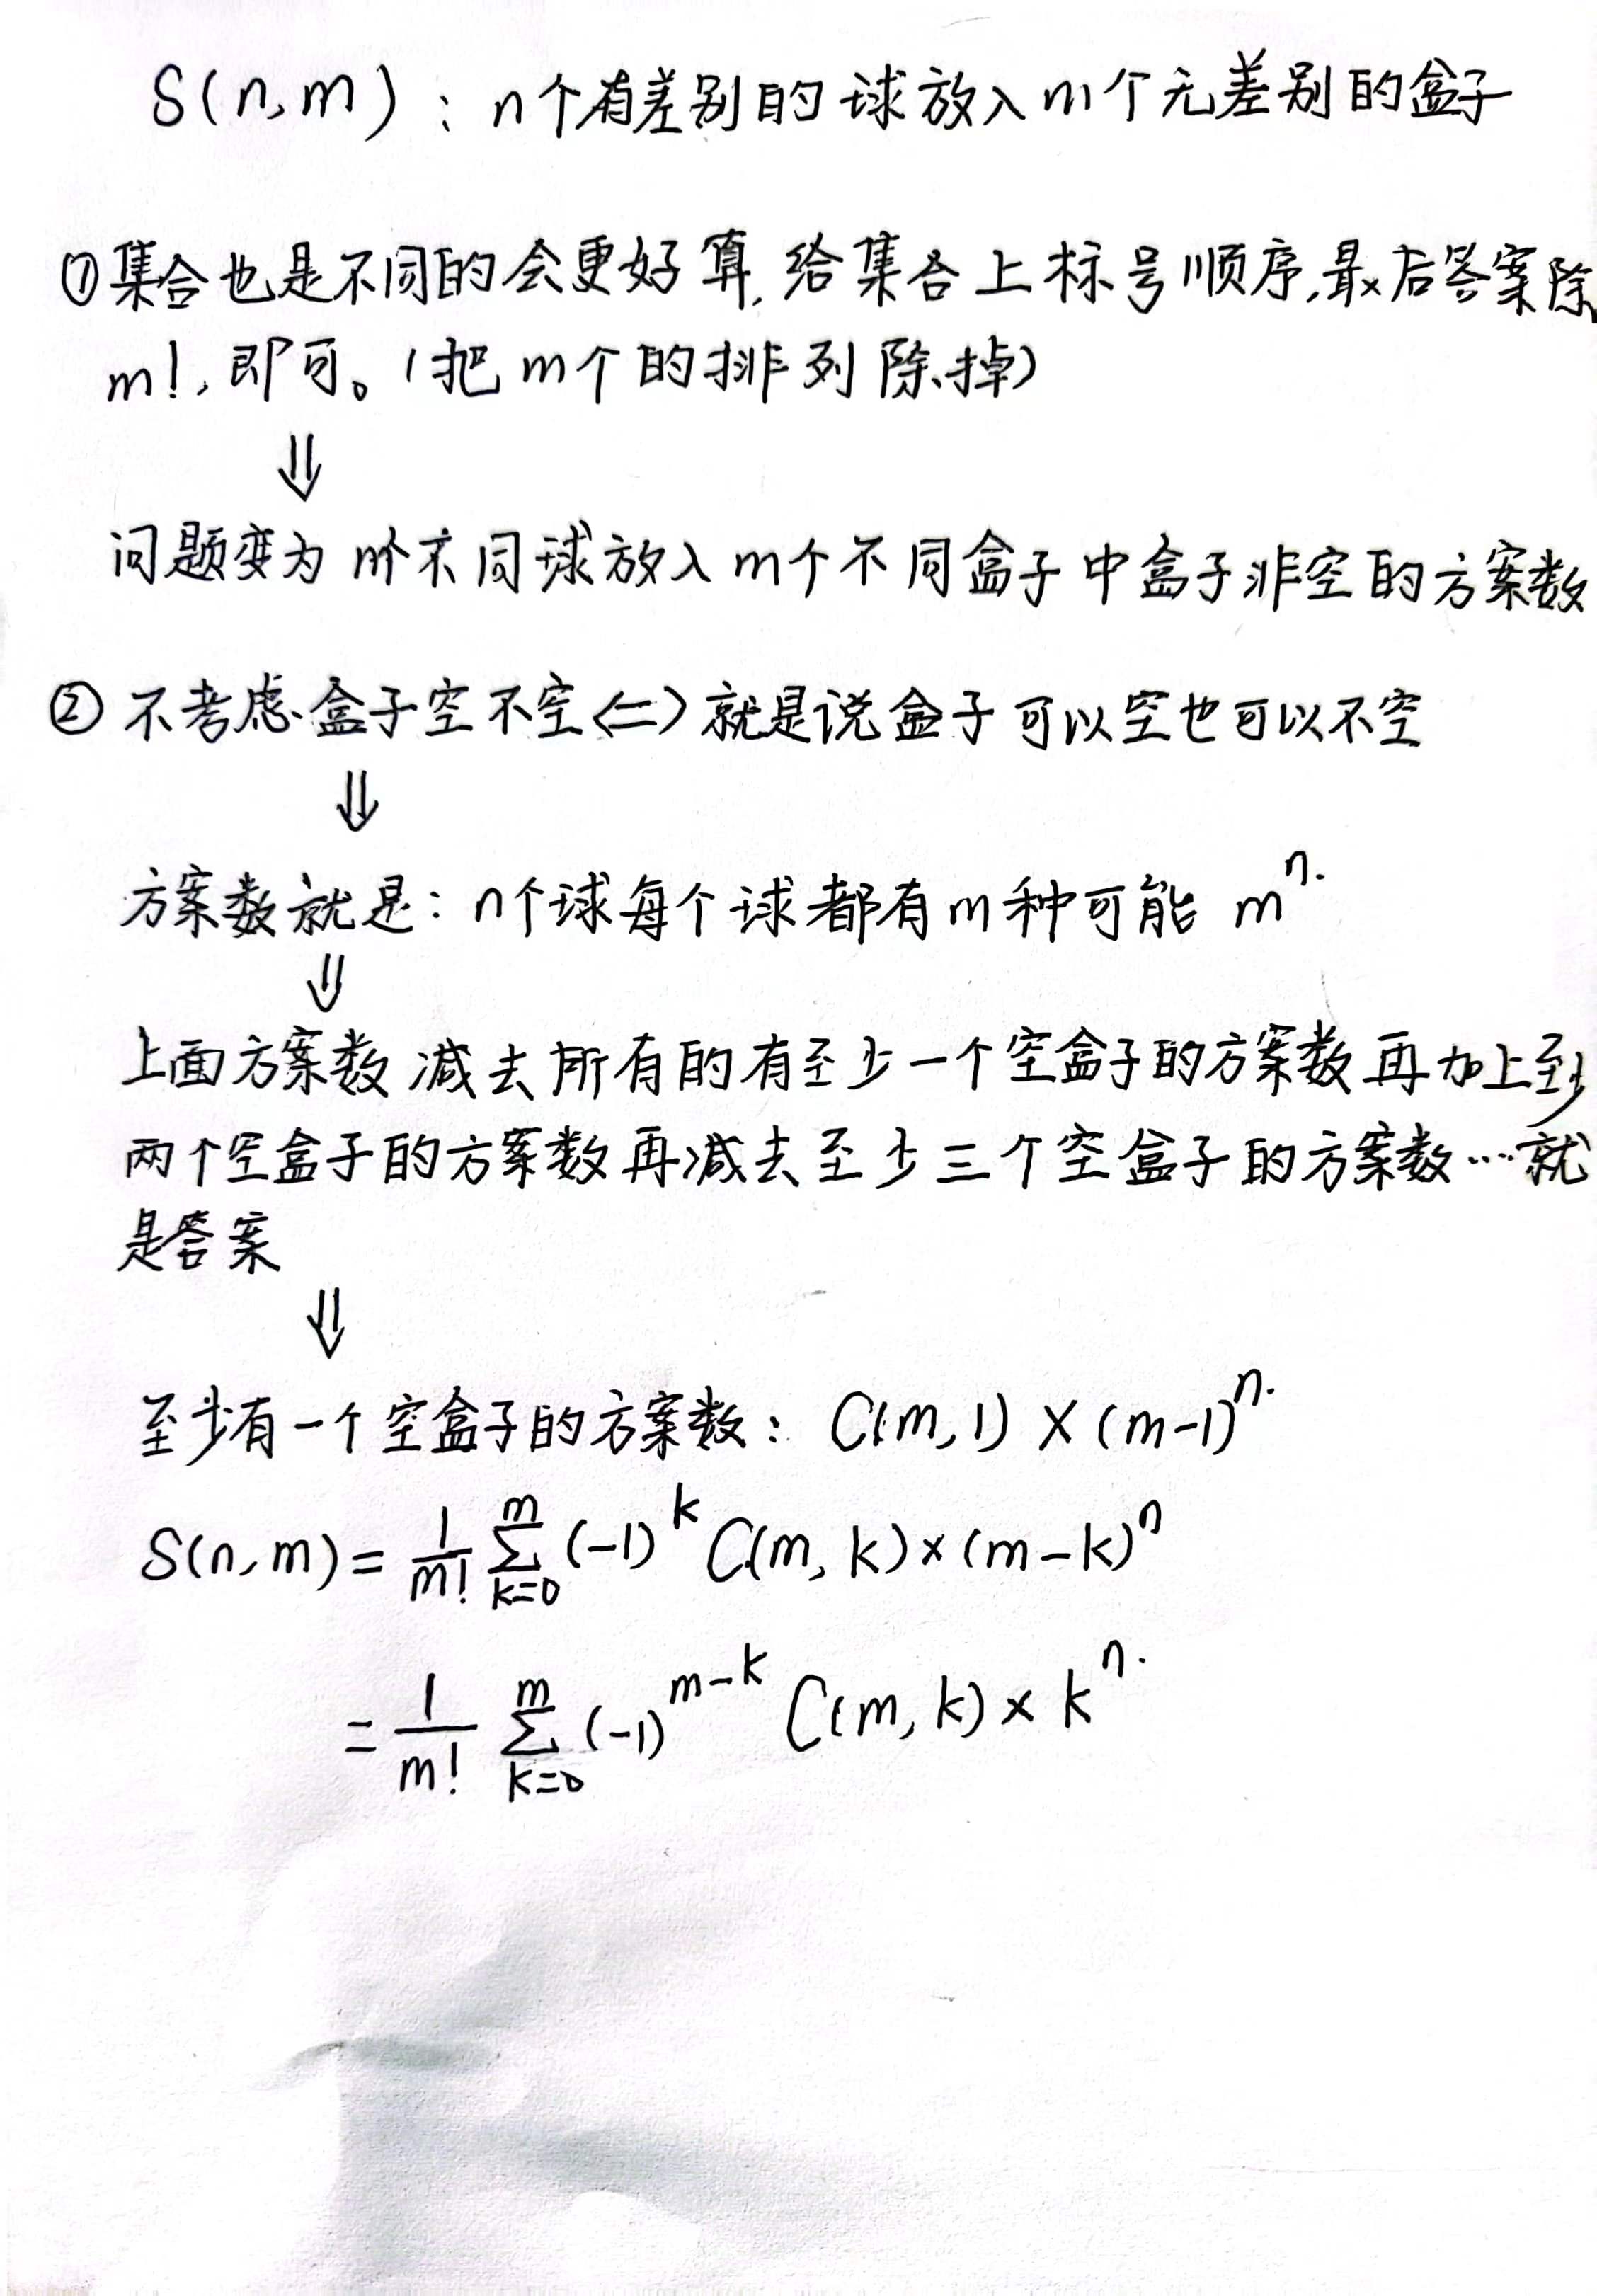 S(n,m)：n个有差别的球放入m个无差别的盒子
①集合也是不同的会更好算,给集合上标号顺序,最后答案除
m!,即可。(把m个的排列除掉)
⇓
问题变为m个不同球放入m个不同盒子中盒子非空的方案数
②不考虑盒子空不空<=>就是说盒子可以空也可以不空
⇓
方案数就是：n个球每个球都有m种可能 m^n.
⇓
上面方案数减去所有的有至少一个空盒子的方案数再加上至少
两个空盒子的方案数再减去至少三个空盒子的方案数……就
是答案
⇓
至少有一个空盒子的方案数：C(m,1)×(m-1)^n.
S(n,m)= 1/m! ∑_{k=0}^{m} (-1)^k C(m,k)×(m-k)^n
= 1/m! ∑_{k=0}^{m} (-1)^{m-k} C(m,k)×k^n.